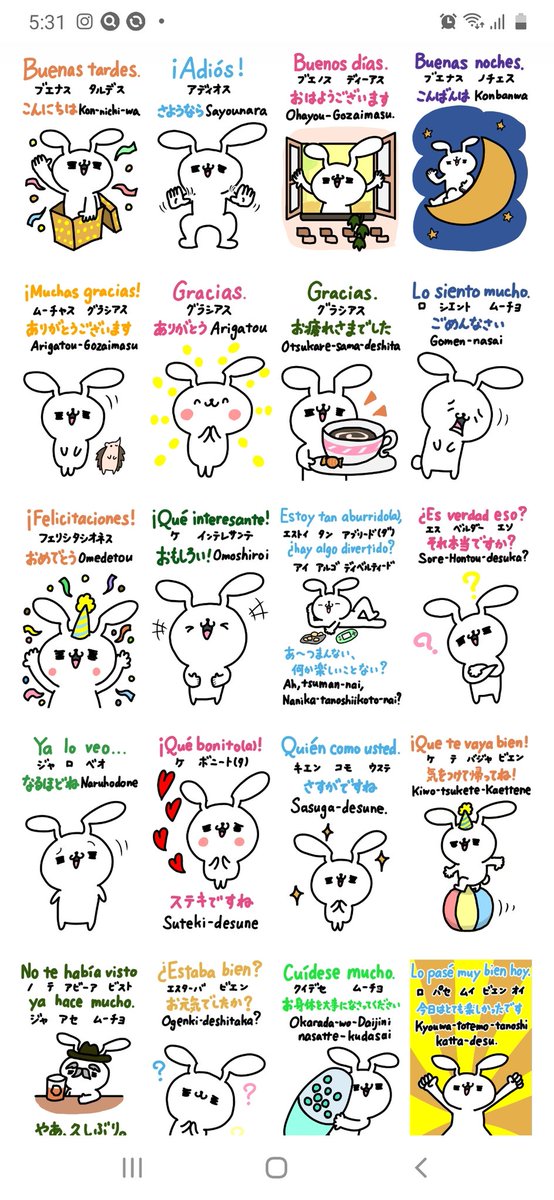 5:31
Buenas tardes.
ブエナス タルデス
こんにちは Kon-nichi-wa
¡Adiós!
アデイオス
さようなら Sayounara
Buenos días.
ブエノス ディーアス
おはようございます
Ohayou-Gozaimasu.
Buenas noches.
ブエナス ノチェス
こんばんは Konbanwa
¡Muchas gracias!
ムーチャス グラシアス
ありがとうございます
Arigatou-Gozaimasu
Gracias.
グラシアス
ありがとう Arigatou
Gracias.
グラシアス
お疲れさまでした
Otsukare-sama-deshita
Lo siento mucho.
ロ シエント ムーチョ
ごめんなさい
Gomen-nasai
¡Felicitaciones!
フェリシタシオネス
おめでとう Omedetou
¡Qué interesante!
ケ インテレサンテ
おもしろい! Omoshiroi
Estoy tan aburrido(a),
エストイ タン アブリード(ダ)
¿hay algo divertido?
アイ アルゴ ディベルティード
あ〜つまんない、
何か楽しいことない?
Ah, tsuman-nai,
Nanika-tanoshiikoto-nai?
¿Es verdad eso?
エス ベルダー エソ
それ本当ですか?
Sore-Hontou-desuka?
Ya lo veo...
ジャ ロ ベオ
なるほどね Naruhodone
¡Qué bonito(a)!
ケ ボニート(タ)
ステキですね
Suteki-desune
Quién como usted.
キエン コモ ウステ
さすがですね
Sasuga-desune.
¡Que te vaya bien!
ケ テ バジャ ビエン
気をつけて帰ってね!
Kiwo-tsukete-Kaettene
No te había visto
ノ テ アビーア ビスト
ya hace mucho.
ジャ アセ ムーチョ
やあ、久しぶり。
¿Estaba bien?
エスターバ ビエン
お元気でしたか?
Ogenki-deshitaka?
Cuídese mucho.
クイデセ ムーチョ
お身体を大事になさってください
Okarada-wo-Daijini
nasatte-kudasai
Lo pasé muy bien hoy.
ロ パセ ムイ ビエン オイ
今日はとても楽しかったです
Kyouwa-totemo-tanoshi
katta-desu.